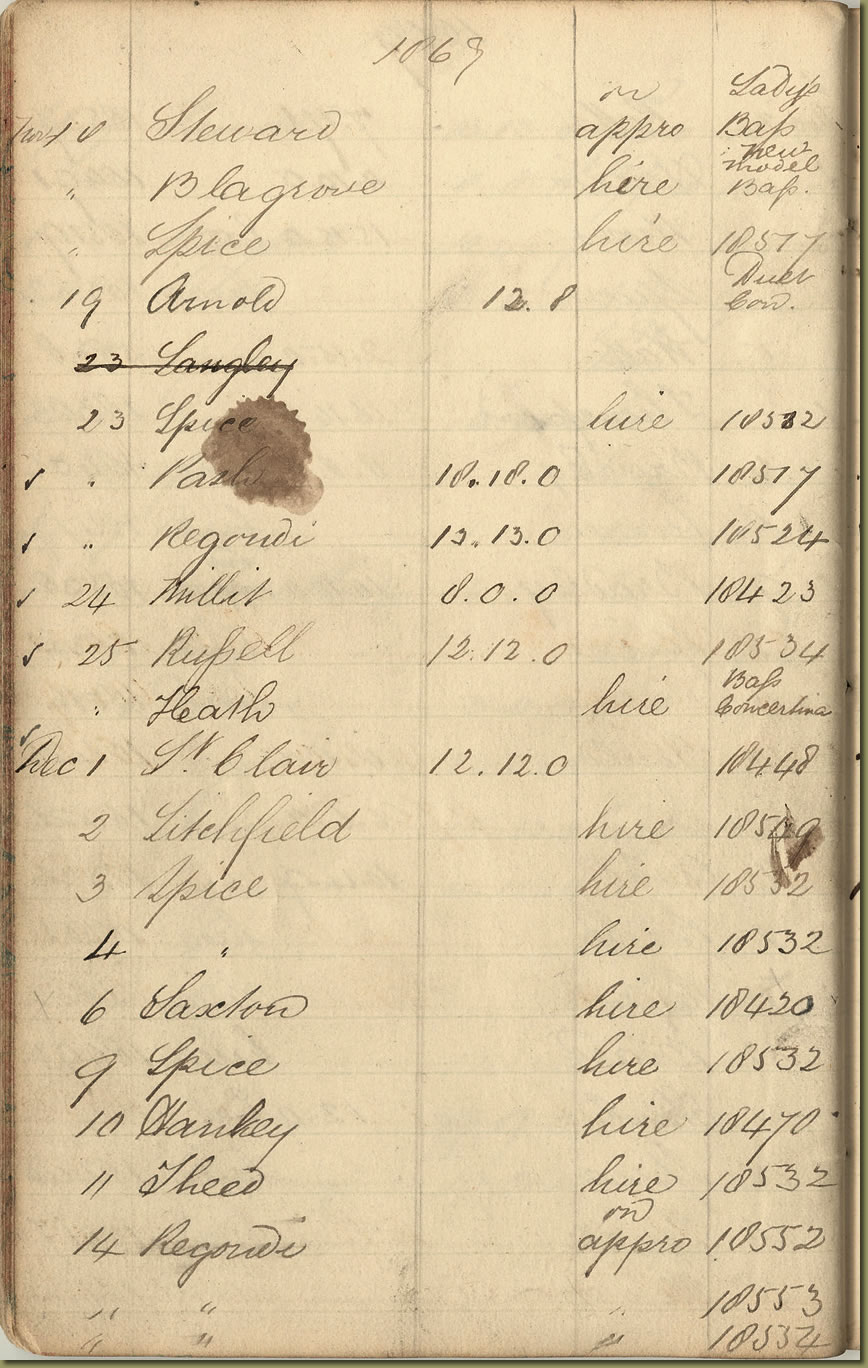 1863
on Lady's
Novr 8 Steward appro Bass
new model
" Blagrove hire Bass.
" Spice hire 18517
Duet
19 Arnold 12. 8 Con.
23 Langley
23 Spice hire 18532
" Pash 18.18.0 18517
" Regondi 13.13.0 18524
24 Millit 8.0.0 18423
25 Russell 12.12.0 18534
Bass
" Heath hire Concertina
Dec 1 St. Clair 12.12.0 18448
2 Litchfield hire
3 Spice hire 18532
4 " hire 18532
6 Saxton hire 18420
9 Spice hire 18532
10 Hankey hire 18470
11 Theed hire 18532
on
14 Regondi appro 18552
" " " 18553
" " " 18534